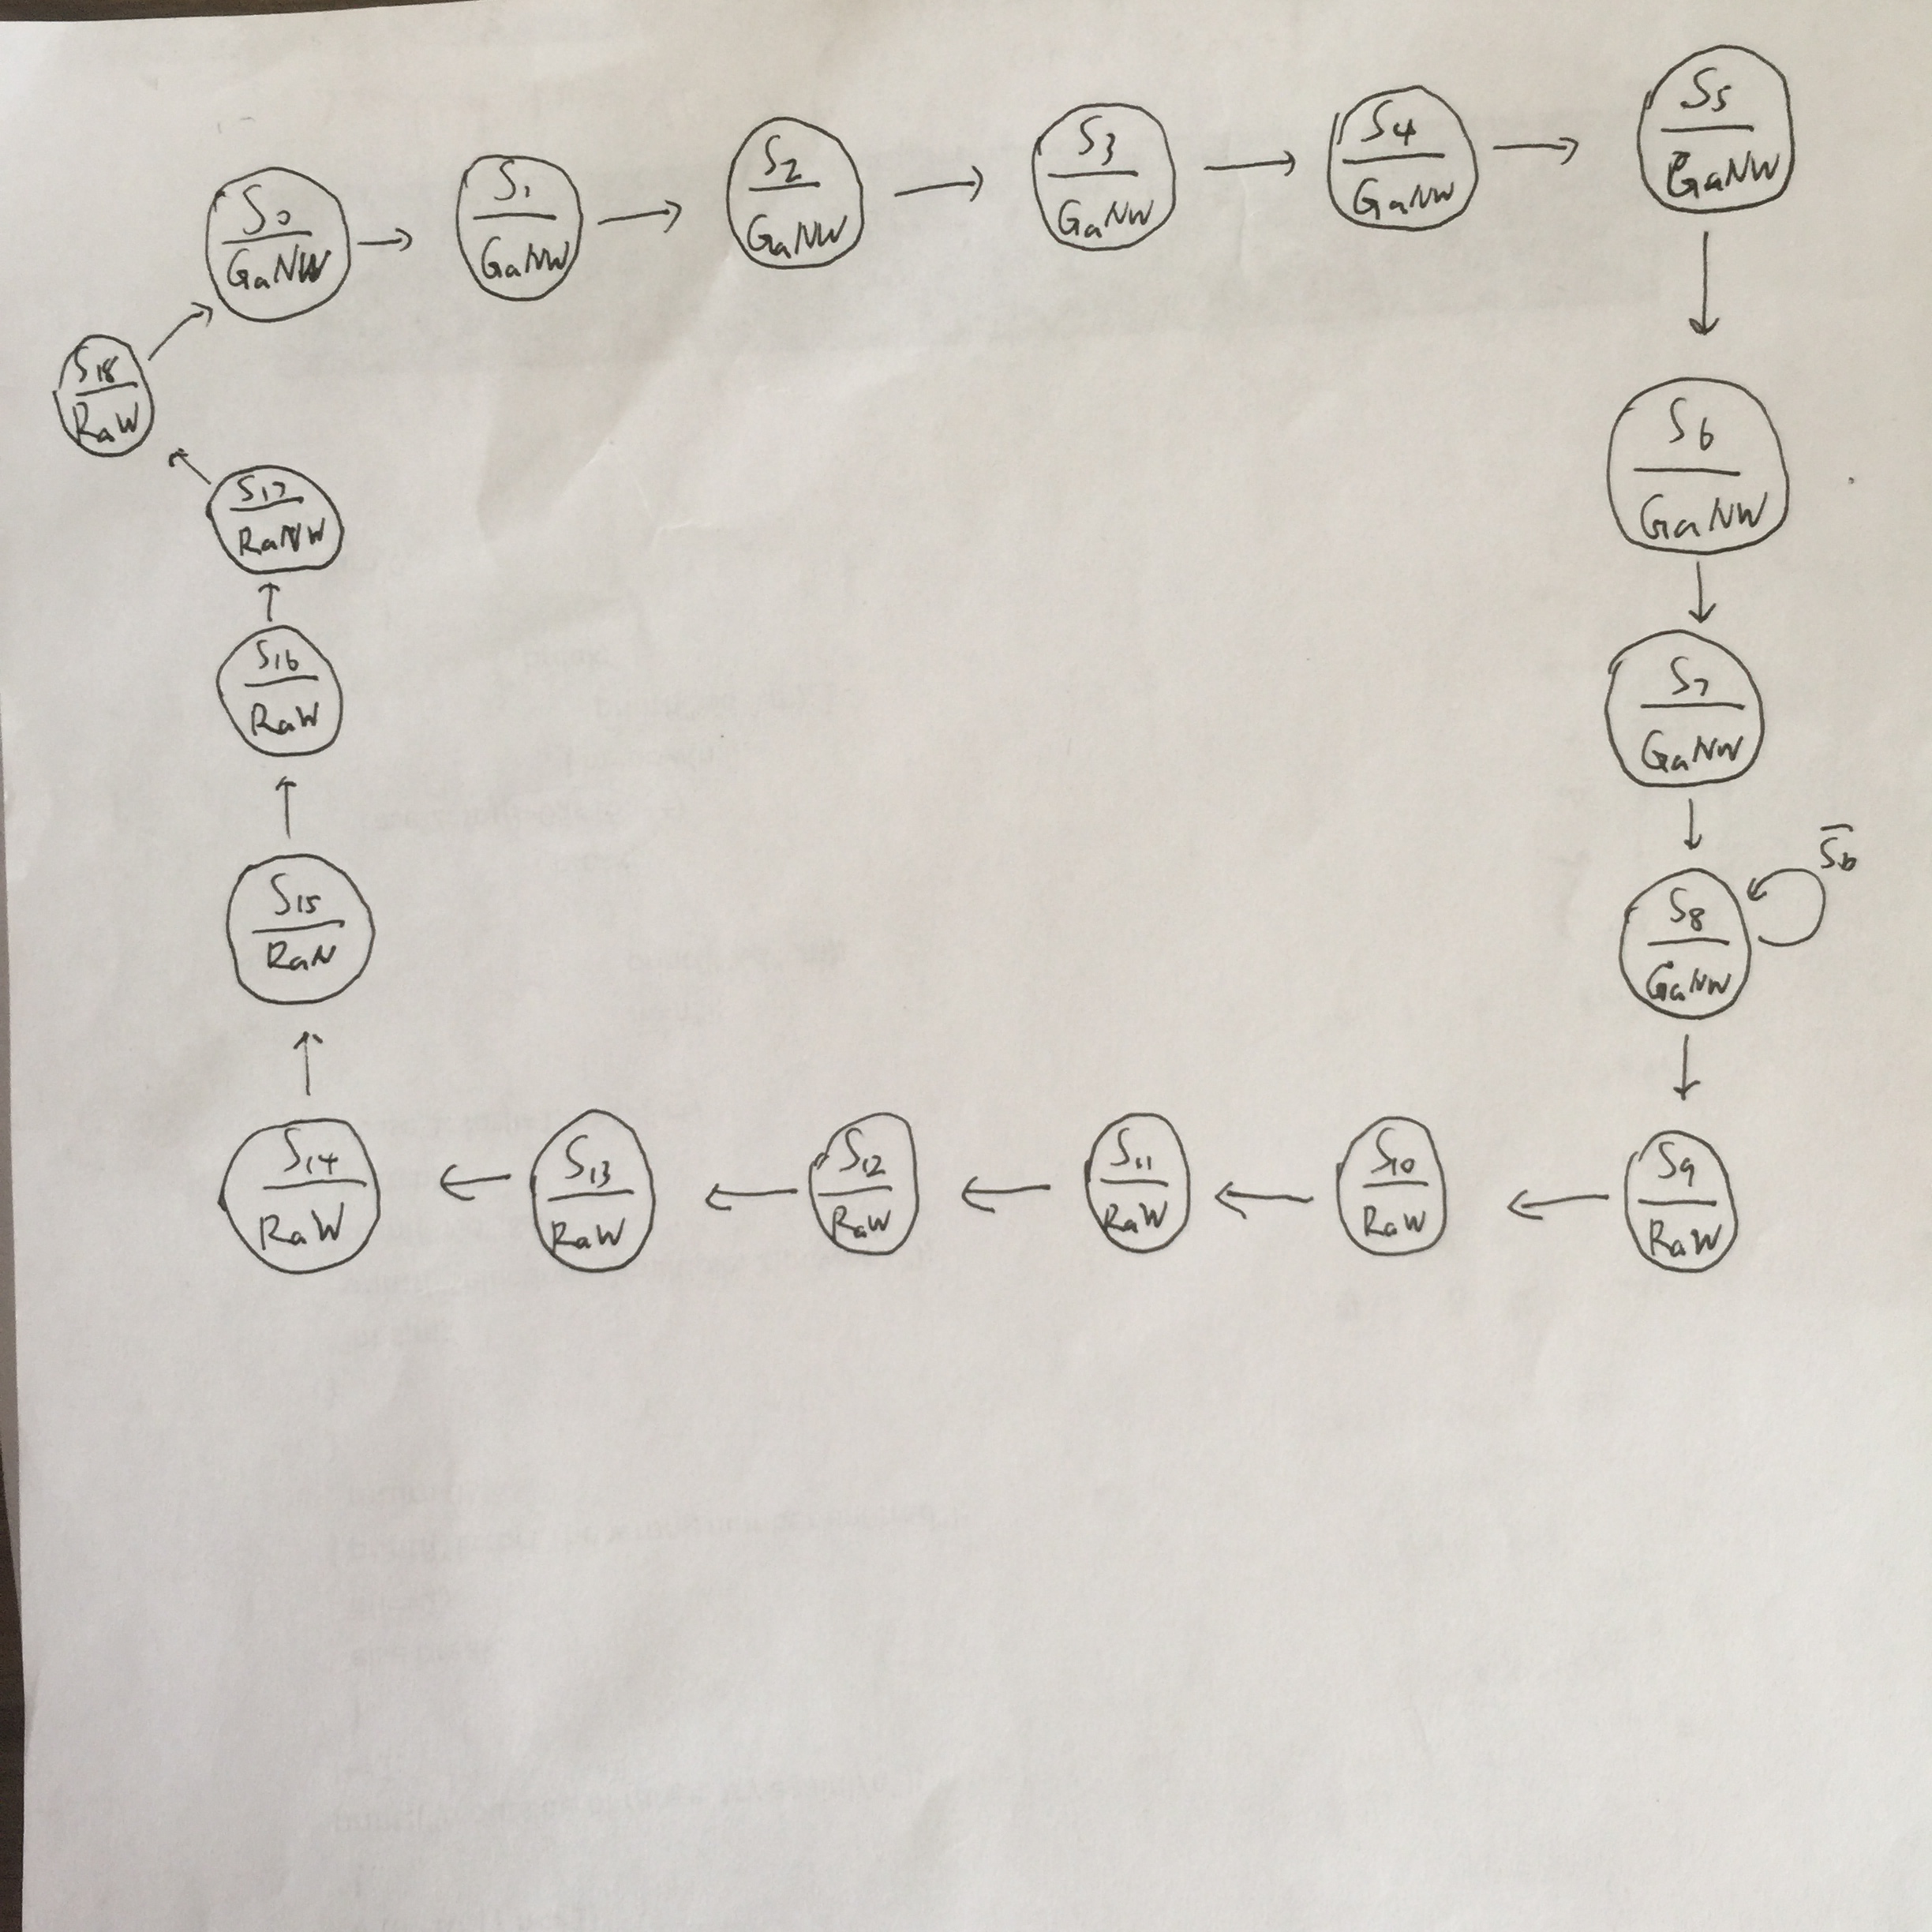 S0
GaNW
S1
GaNW
S2
GaNW
S3
GaNW
S4
GaNW
S5
GaNW
S6
GaNW
S7
GaNW
S̅b̅
S8
GaNW
S9
RaW
S10
RaW
S11
RaW
S12
RaW
S13
RaW
S14
RaW
S15
RaN
S16
RaW
S17
RaNW
S18
RaW